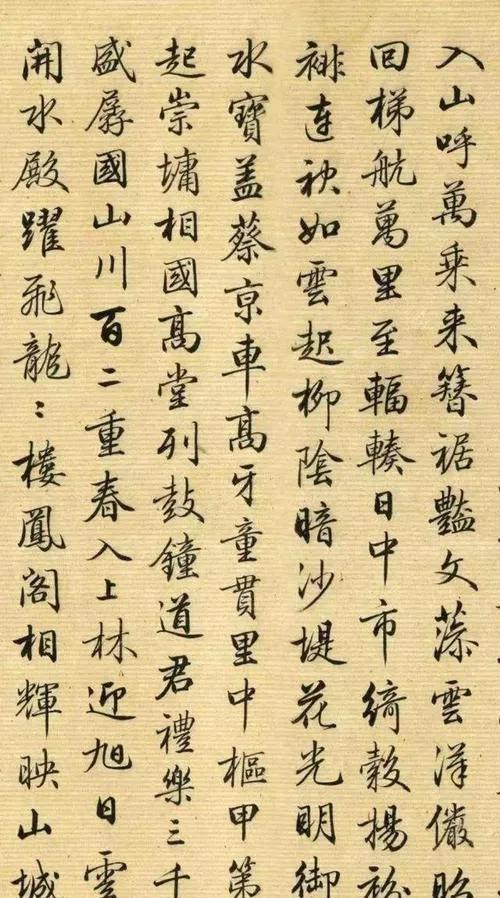 入山呼萬乗来簪裾豔文藻雲漢儼昭
回梯航萬里至輻輳日中市綺縠揚
裶連袂如雲起柳陰暗沙堤花光明御
水寶盖蔡京車高牙童貫里中樞甲第
起崇墉相國高堂列鼓鐘道君禮樂三千
盛國山川百二重春入上林迎旭日雲
開水殿躍飛龍〻樓鳳閣相輝映山城